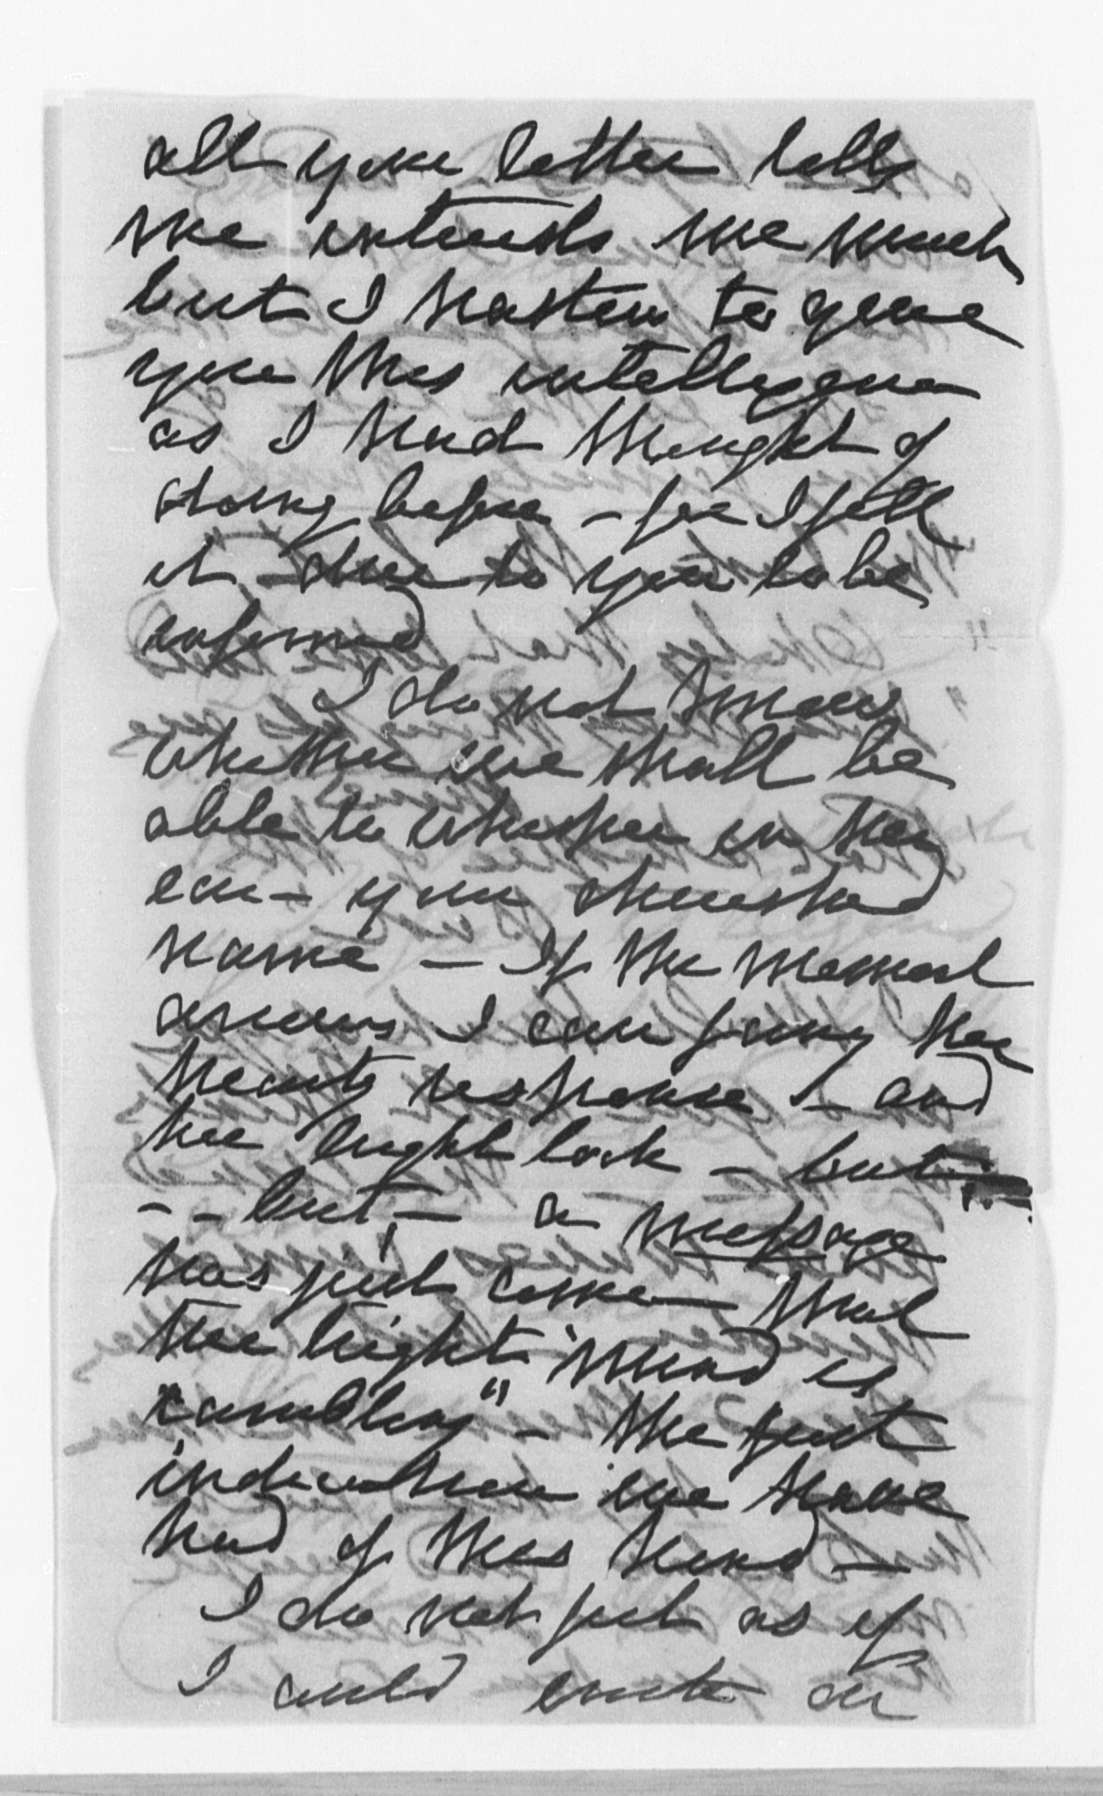 all your letter tells
me interests me much
but I hasten to give
you this intelligence
as I had thought of
doing before - for I felt
it due to you to be
informed
I do not know
whether we shall be
able to whisper in her
ear - your cherished
name - If the moment
arrives I can fancy her
hearty response - and
her bright look - but
- - but - a message
has just come that
the bright "mind is
rambling" - the first
indication we have
had of this kind -
I do not feel as if
I could write on